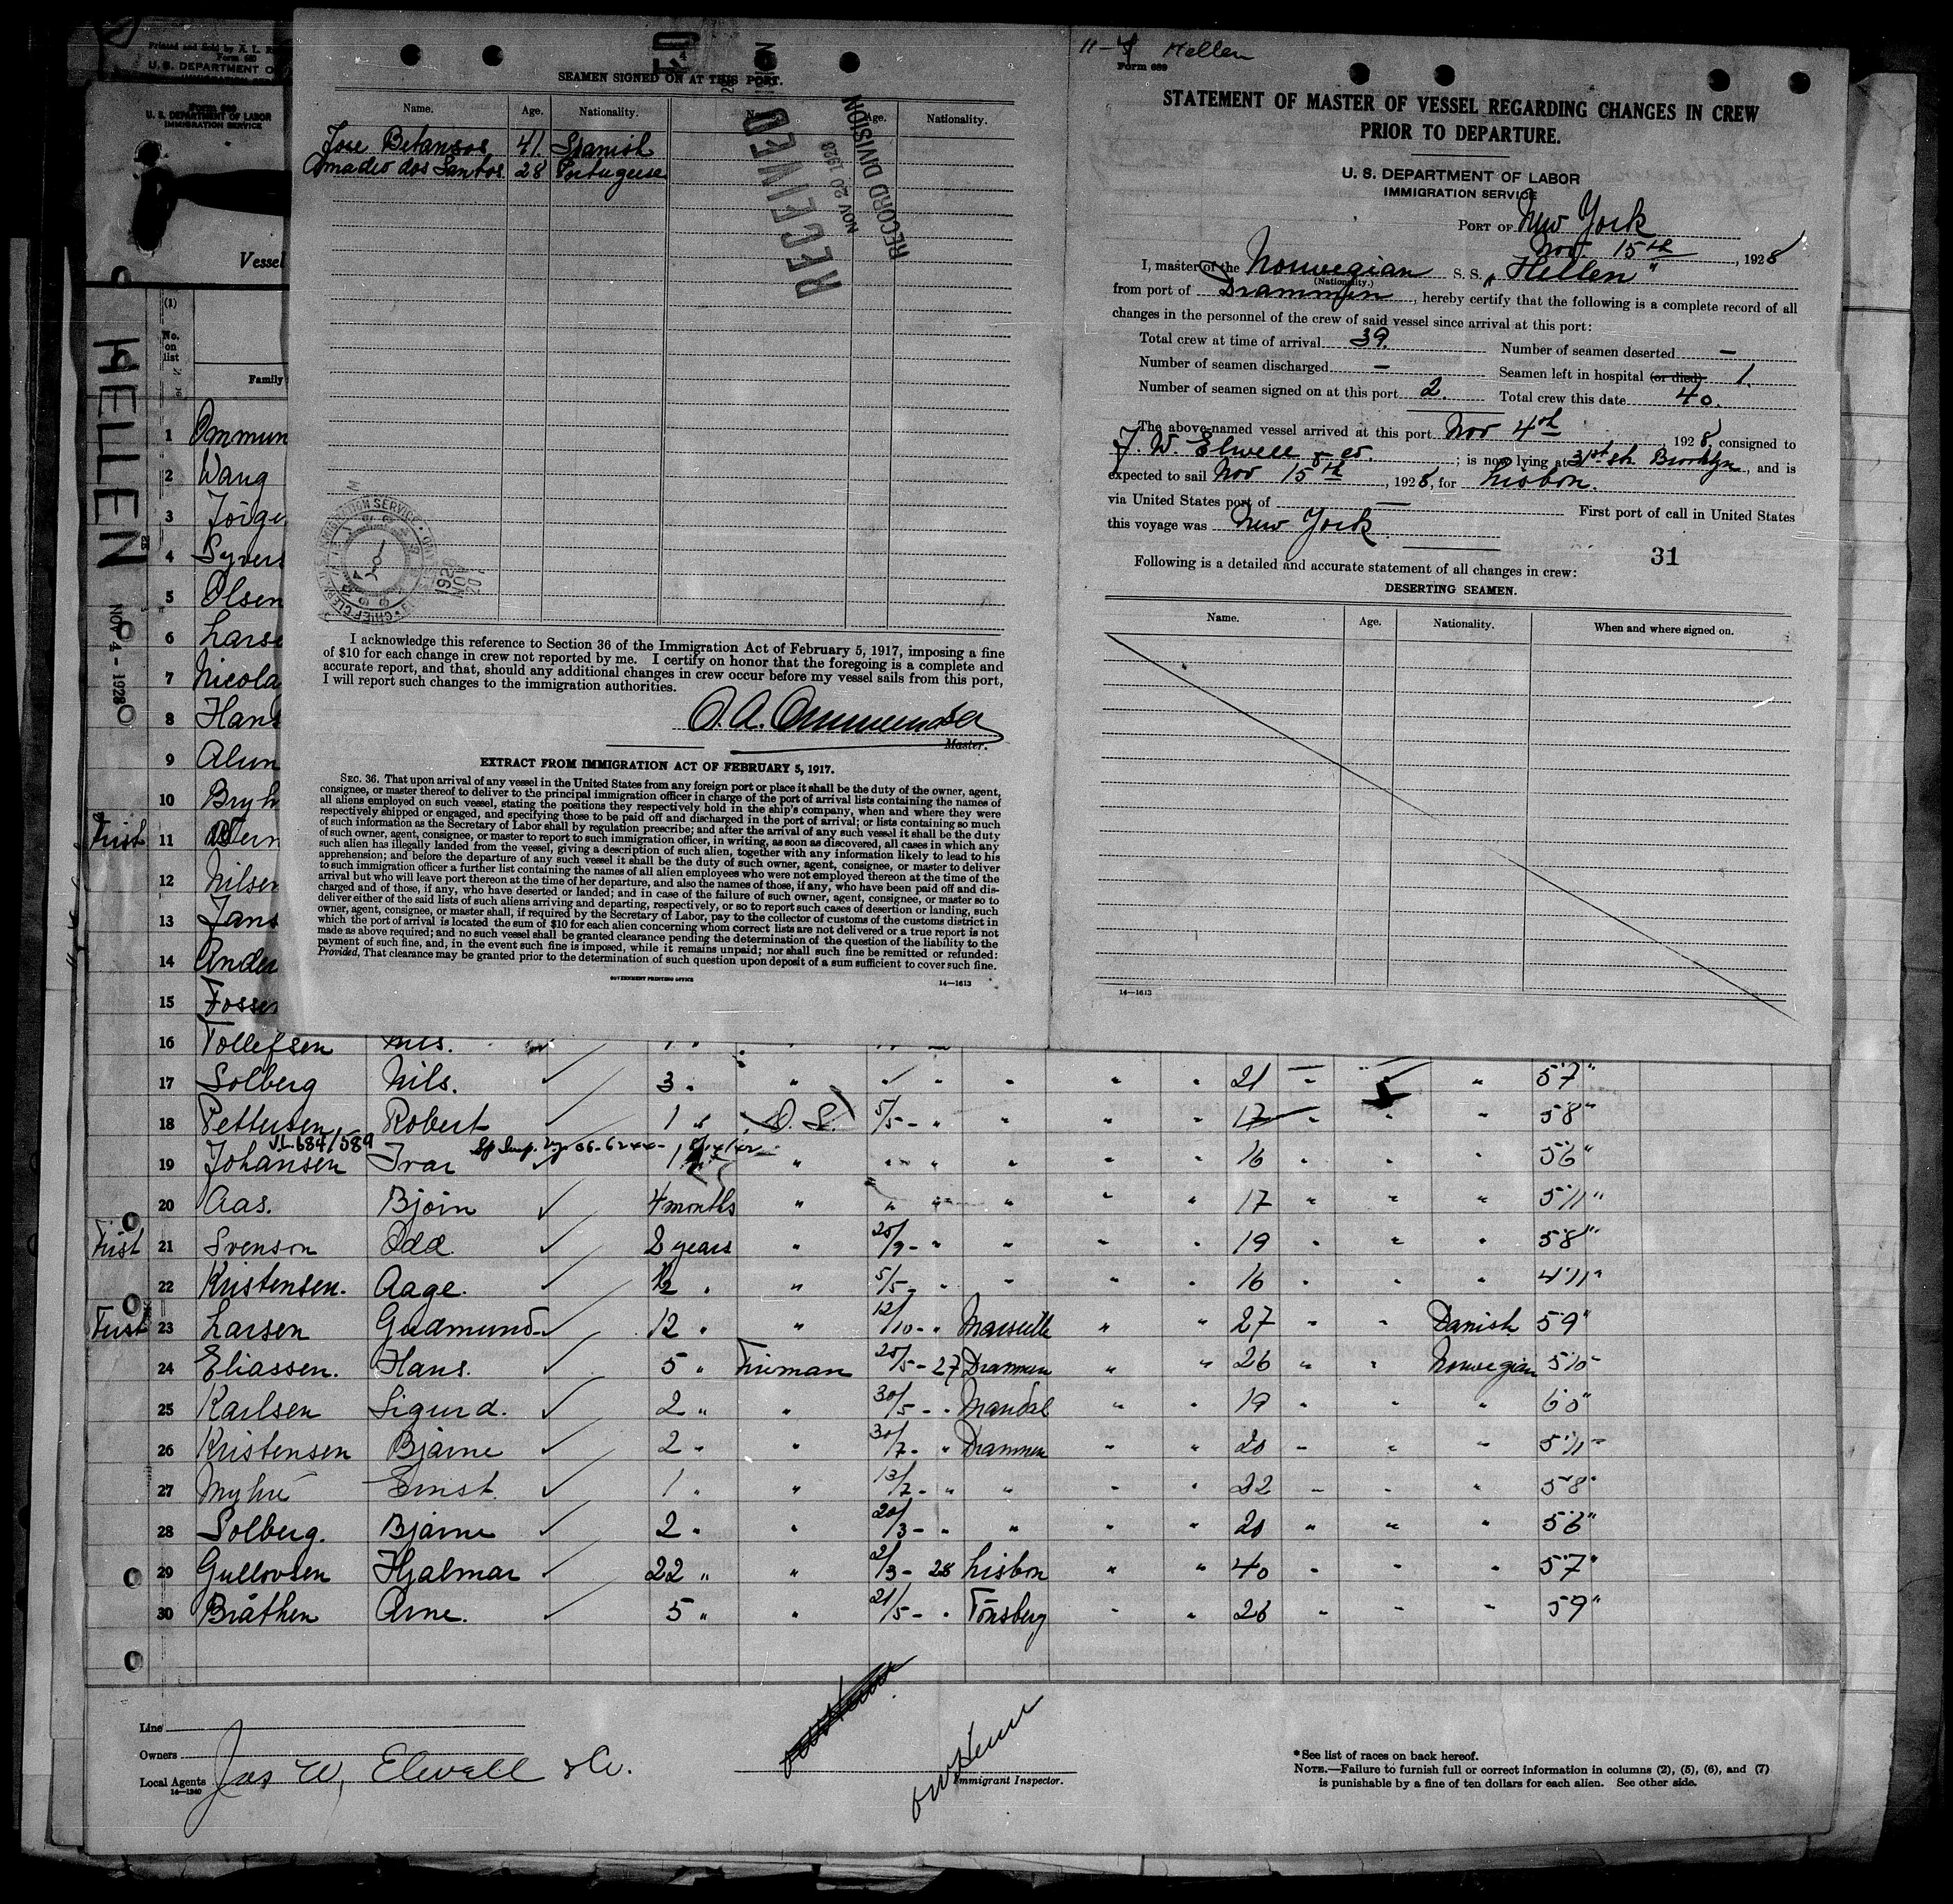 Form 689
U. S. DEPARTMENT OF LABOR
IMMIGRATION SERVICE
Vessel
HELLEN
NOV 4 - 1928
(1)
No. on list
Family
SEAMEN SIGNED ON AT THIS PORT.
Name. Age. Nationality. Name. Age. Nationality.
Jose Betansos 41 Spanish
Amadeo dos Santos 28 Portuguese
RECEIVED
NOV 20 1928
RECORD DIVISION
I acknowledge this reference to Section 36 of the Immigration Act of February 5, 1917, imposing a fine
of $10 for each change in crew not reported by me. I certify on honor that the foregoing is a complete and
accurate report, and that, should any additional changes in crew occur before my vessel sails from this port,
I will report such changes to the immigration authorities.
O. A. Ommundsen
Master.
EXTRACT FROM IMMIGRATION ACT OF FEBRUARY 5, 1917.
SEC. 36. That upon arrival of any vessel in the United States from any foreign port or place it shall be the duty of the owner, agent,
consignee, or master thereof to deliver to the principal immigration officer in charge of the port of arrival lists containing the names of
all aliens employed on such vessel, stating the positions they respectively hold in the ship's company, when and where they were
respectively shipped or engaged, and specifying those to be paid off and discharged in the port of arrival; or lists containing so much
of such information as the Secretary of Labor shall by regulation prescribe; and after the arrival of any such vessel it shall be the duty
of such owner, agent, consignee, or master to report to such immigration officer, in writing, as soon as discovered, all cases in which any
such alien has illegally landed from the vessel, giving a description of such alien, together with any information likely to lead to his
apprehension; and before the departure of any such vessel it shall be the duty of such owner, agent, consignee, or master to deliver
to such immigration officer a further list containing the names of all alien employees who were not employed thereon at the time of the
arrival but who will leave port thereon at the time of her departure, and also the names of those, if any, who have been paid off and dis-
charged and of those, if any, who have deserted or landed; and in case of the failure of such owner, agent, consignee, or master so to
deliver either of the said lists of such aliens arriving and departing, respectively, or so to report such cases of desertion or landing, such
owner, agent, consignee, or master shall, if required by the Secretary of Labor, pay to the collector of customs of the customs district in
which the port of arrival is located the sum of $10 for each alien concerning whom correct lists are not delivered or a true report is not
made as above required; and no such vessel shall be granted clearance pending the determination of the question of the liability to the
payment of such fine, and, in the event such fine is imposed, while it remains unpaid; nor shall such fine be remitted or refunded:
Provided, That clearance may be granted prior to the determination of such question upon deposit of a sum sufficient to cover such fine.
GOVERNMENT PRINTING OFFICE
14—1613
11-4 Hellen
Form 689
STATEMENT OF MASTER OF VESSEL REGARDING CHANGES IN CREW
PRIOR TO DEPARTURE.
U. S. DEPARTMENT OF LABOR
IMMIGRATION SERVICE
PORT OF New York
Nov 15th, 1928
I, master of the Norwegian S. S. "Hellen"
(Nationality.)
from port of Drammen, hereby certify that the following is a complete record of all
changes in the personnel of the crew of said vessel since arrival at this port:
Total crew at time of arrival 39. Number of seamen deserted —
Number of seamen discharged — Seamen left in hospital (or died) 1.
Number of seamen signed on at this port 2. Total crew this date 40.
The above-named vessel arrived at this port Nov 4th, 1928, consigned to
J. W. Elwell & co.; is now lying at 31st str. Brooklyn, and is
expected to sail Nov 15th, 1928, for Lisbon.
via United States port of — First port of call in United States
this voyage was New York
31
Following is a detailed and accurate statement of all changes in crew:
DESERTING SEAMEN.
Name. Age. Nationality. When and where signed on.
14—1613
1 Ommun
2 Wang
3 Jörge
4 Syvers
5 Olsen
6 Larse
7 Nicola
8 Hans
9 Alun
10 Bryh
First 11 Bern
12 Nilsen
13 Jans
14 Ander
15 Fossen
16 Tollefsen Nils.
17 Solberg Nils. 3 " " " " " " " 21 " " " 5'7"
18 Pettersen Robert 1 " O. S. 5/5 - " " " " 17 " " " 5'8"
19 Johansen Ivar 1 " " " " " " 16 " " " 5'6"
20 Aas. Bjorn 4 months " " " " " " 17 " " " 5'11"
First 21 Svenson Odd 2 years " 25/9 - " " " " 19 " " " 5'8"
22 Kristensen. Aage. 1/2 " " 5/5 - " " " " 16 " " " 4'11"
First 23 Larsen Gudmund 12 " " 12/10 - " Marseille " " 27 " " Danish 5'9"
24 Eliassen. Hans. 5 " Fireman 25/5 - 27 Drammen " " 26 " " Norwegian 5'10"
25 Karlsen Sigurd. 2 " " 30/5 - " Mandal " " 19 " " " 6'0"
26 Kristensen Bjarne 2 " " 30/7 - " Drammen " " 20 " " " 5'11"
27 Myhre Ernst. 1 " " 13/7 - " " " " 22 " " " 5'8"
28 Solberg. Bjarne 2 " " 20/3 - " " " " 20 " " " 5'6"
29 Gullovsen Hjalmar 22 " " 2/3 - 28 Lisbon " " 40 " " " 5'7"
30 Bråthen Arne. 5 " " 21/5 - " Tönsberg " " 26 " " " 5'9"
Line
Owners
Local Agents Jas W. Elwell & Co.
14—1240
Immigrant Inspector.
*See list of races on back hereof.
NOTE.—Failure to furnish full or correct information in columns (2), (5), (6), and (7)
is punishable by a fine of ten dollars for each alien. See other side.